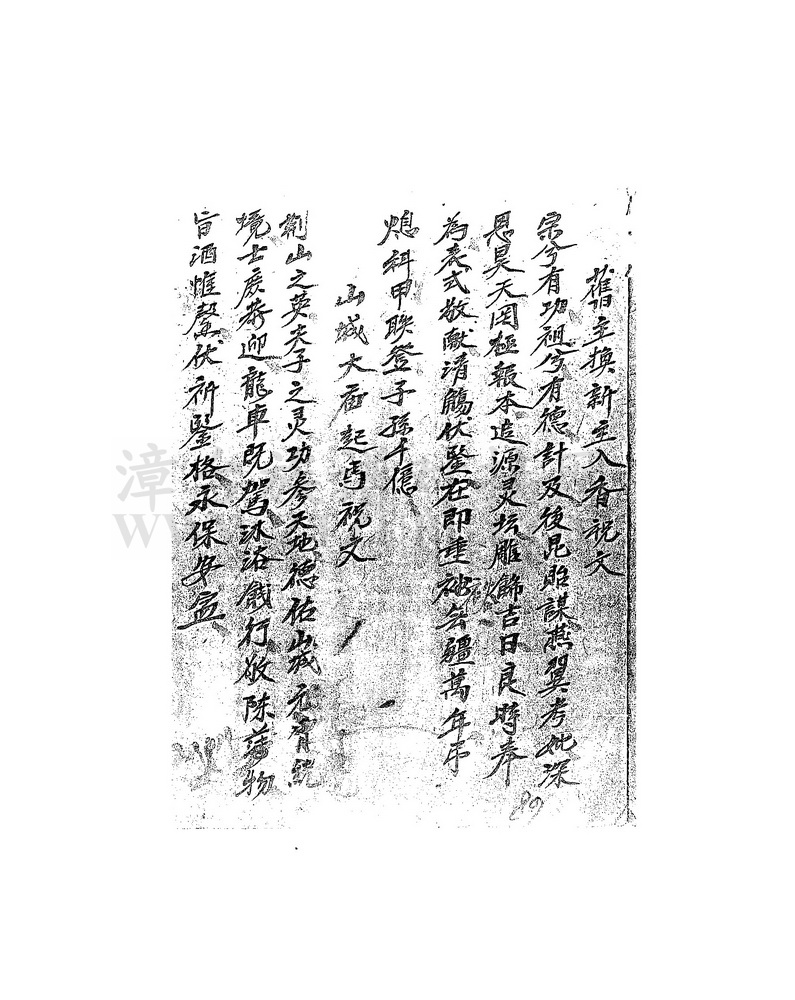 舊主換新主入香祝文
宗兮有功祖兮有德計及後昆貽謀燕翼考妣深
恩昊天罔極報本追源灵坛雕飾吉日良時奉
為表式敬献清觴伏鍳在即垂裕無疆萬年弗
熄科甲联登子孫千億
山城大庙起馬祝文
荆山之英夫子之灵功参天地德佑山城元宵繞
境士庶恭迎龍車既駕沐浴戲行敬陳薄物
旨酒惟馨伏祈鍳格永保安盖
89
漳
www